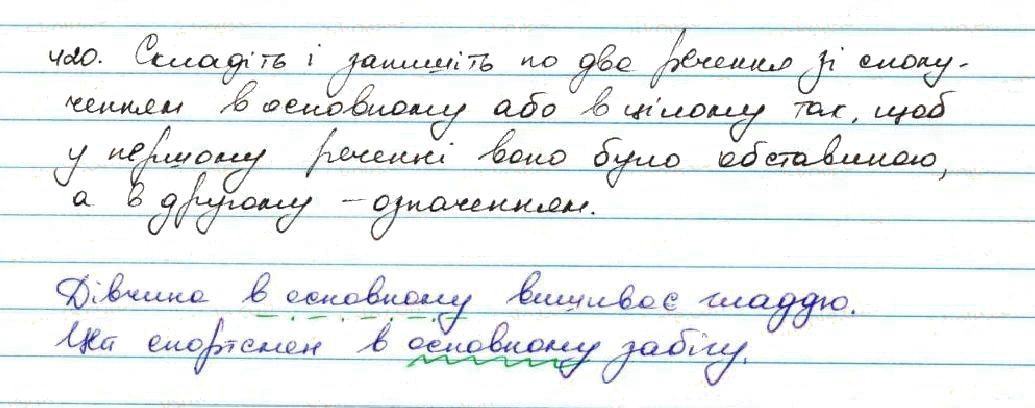 420. Складіть і запишіть по два речення зі сполу-
ченням в основному або в цілому так, щоб
у першому реченні воно було обставиною,
а в другому – означенням.
Дівчина в основному вишиває гладдю.
Цей спортсмен в основному забігу.